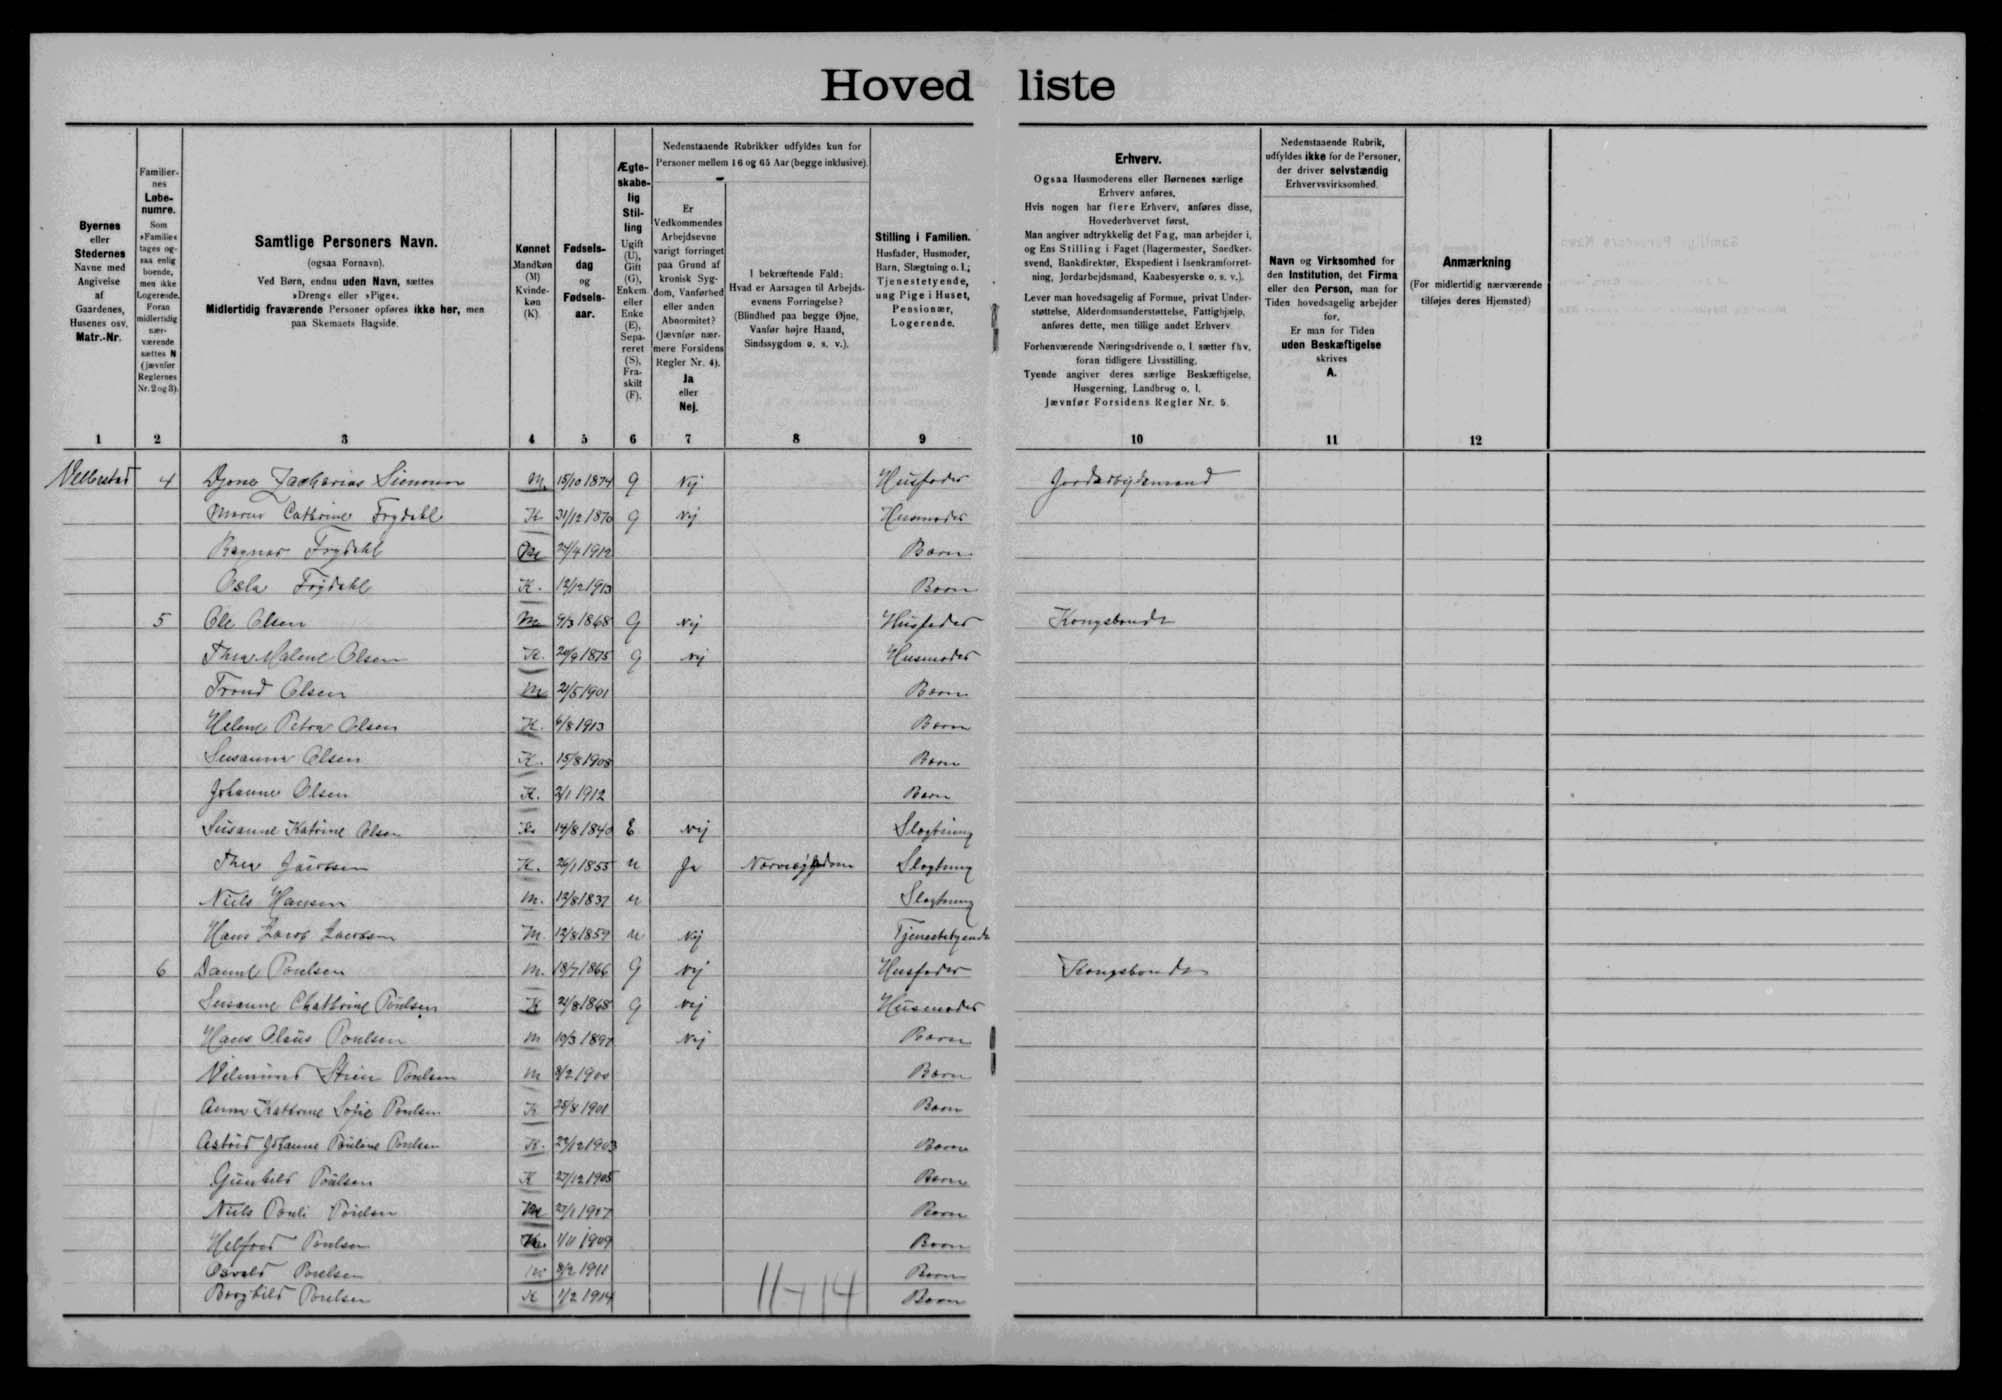 Hovedliste
Byernes
eller
Stedernes
Navne med
Angivelse
af
Gaardenes,
Husenes osv.
Matr.-Nr.
Familier-
nes
Løbe-
numre.
Som
»Familie«
tages og-
saa enlig
boende,
men ikke
Logerende.
Foran
midlertidig
nær-
værende
sættes N
(jævnfør
Reglernes
Nr. 2 og 3).
Samtlige Personers Navn.
(ogsaa Fornavn).
Ved Børn, endnu uden Navn, sættes
»Dreng« eller »Pige«.
Midlertidig fraværende Personer opføres ikke her, men
paa Skemaets Bagside.
Kønnet
Mandkøn
(M)
Kvinde-
køn
(K).
Fødsels-
dag
og
Fødsels-
aar.
Ægte-
skabe-
lig
Stil-
ling
Ugift
(U),
Gift
(G),
Enkem.
eller
Enke
(E),
Sepa-
reret
(S),
Fra-
skilt
(F).
Nedenstaaende Rubrikker udfyldes kun for
Personer mellem 16 og 65 Aar (begge inklusive).
Er
Vedkommendes
Arbejdsevne
varigt forringet
paa Grund af
kronisk Syg-
dom, Vanførhed
eller anden
Abnormitet?
(Jævnfør nær-
mere Forsidens
Regler Nr. 4).
Ja
eller
Nej.
I bekræftende Fald:
Hvad er Aarsagen til Arbejds-
evnens Forringelse?
(Blindhed paa begge Øjne,
Vanfør højre Haand,
Sindssygdom o. s. v.).
Stilling i Familien.
Husfader, Husmoder,
Barn, Slægtning o. l.;
Tjenestetyende,
ung Pige i Huset,
Pensionær,
Logerende.
Erhverv.
Ogsaa Husmoderens eller Børnenes særlige
Erhverv anføres.
Hvis nogen har flere Erhverv, anføres disse,
Hovederhvervet først.
Man angiver udtrykkelig det Fag, man arbejder i,
og Ens Stilling i Faget (Bagermester, Snedker-
svend, Bankdirektør, Ekspedient i Isenkramforret-
ning, Jordarbejdsmand, Kaabesyerske o. s. v.).
Lever man hovedsagelig af Formue, privat Under-
støttelse, Alderdomsunderstøttelse, Fattighjælp,
anføres dette, men tillige andet Erhverv.
Forhenværende Næringsdrivende o. l. sætter fhv.
foran tidligere Livsstilling.
Tyende angiver deres særlige Beskæftigelse,
Husgerning, Landbrug o. l.
Jævnfør Forsidens Regler Nr. 5.
Nedenstaaende Rubrik,
udfyldes ikke for de Personer,
der driver selvstændig
Erhvervsvirksomhed.
Navn og Virksomhed for
den Institution, det Firma
eller den Person, man for
Tiden hovedsagelig arbejder
for.
Er man for Tiden
uden Beskæftigelse
skrives
A.
Anmærkning
(For midlertidig nærværende
tilføjes deres Hjemsted)
1 2 3 4 5 6 7 8 9 10 11 12
4 Zacharias M 15/10 1874 G Nej Husfader Jordarbejdsmand
Cathrine Frydahl K 31/12 1870 G Nej Husmoder
Ragnar Frydahl M 1912 Barn
Frydahl K. 12/12 1913 Barn
5 Ole Olsen M 9/3 1868 G Nej Husfader Kongsbonde
Thea Malene Olsen K. 20/9 1875 G Nej Husmoder
Trond Olsen M 21/5 1901 Barn
Helene Petra Olsen K. 6/8 1913 Barn
Susanne Olsen K. 15/8 1908 Barn
Johanne Olsen K. 2/1 1912 Barn
Susanne Katrine Olsen K. 14/8 1840 E Nej Slægtning
Thea K. 26/1 1855 u Ja Slægtning
Niels Hansen M. 12/8 1837 u Slægtning
Hans M 12/8 1859 u Nej Tjenestetyende
6 Daniel Poulsen M. 18/7 1866 G Nej Husfader Kongsbonde
Susanne Chathrine Poulsen K 21/8 1868 G Nej Husmoder
Hans Claus Poulsen M 10/3 1897 Nej Barn
Vilmund Poulsen M 8/2 1900 Barn
Anna Kathrine Sofie Poulsen K 25/8 1901 Barn
Astrid Johanne Pouline Poulsen K. 29/12 1903 Barn
Gunhild Poulsen K 27/12 1905 Barn
Niels Pauli Poulsen M 27/1 1907 Barn
Helfred Poulsen 1/11 1909 Barn
Osvald Poulsen M 8/2 1911 Barn
Borghild Poulsen K 1/2 1914 Barn
11+14